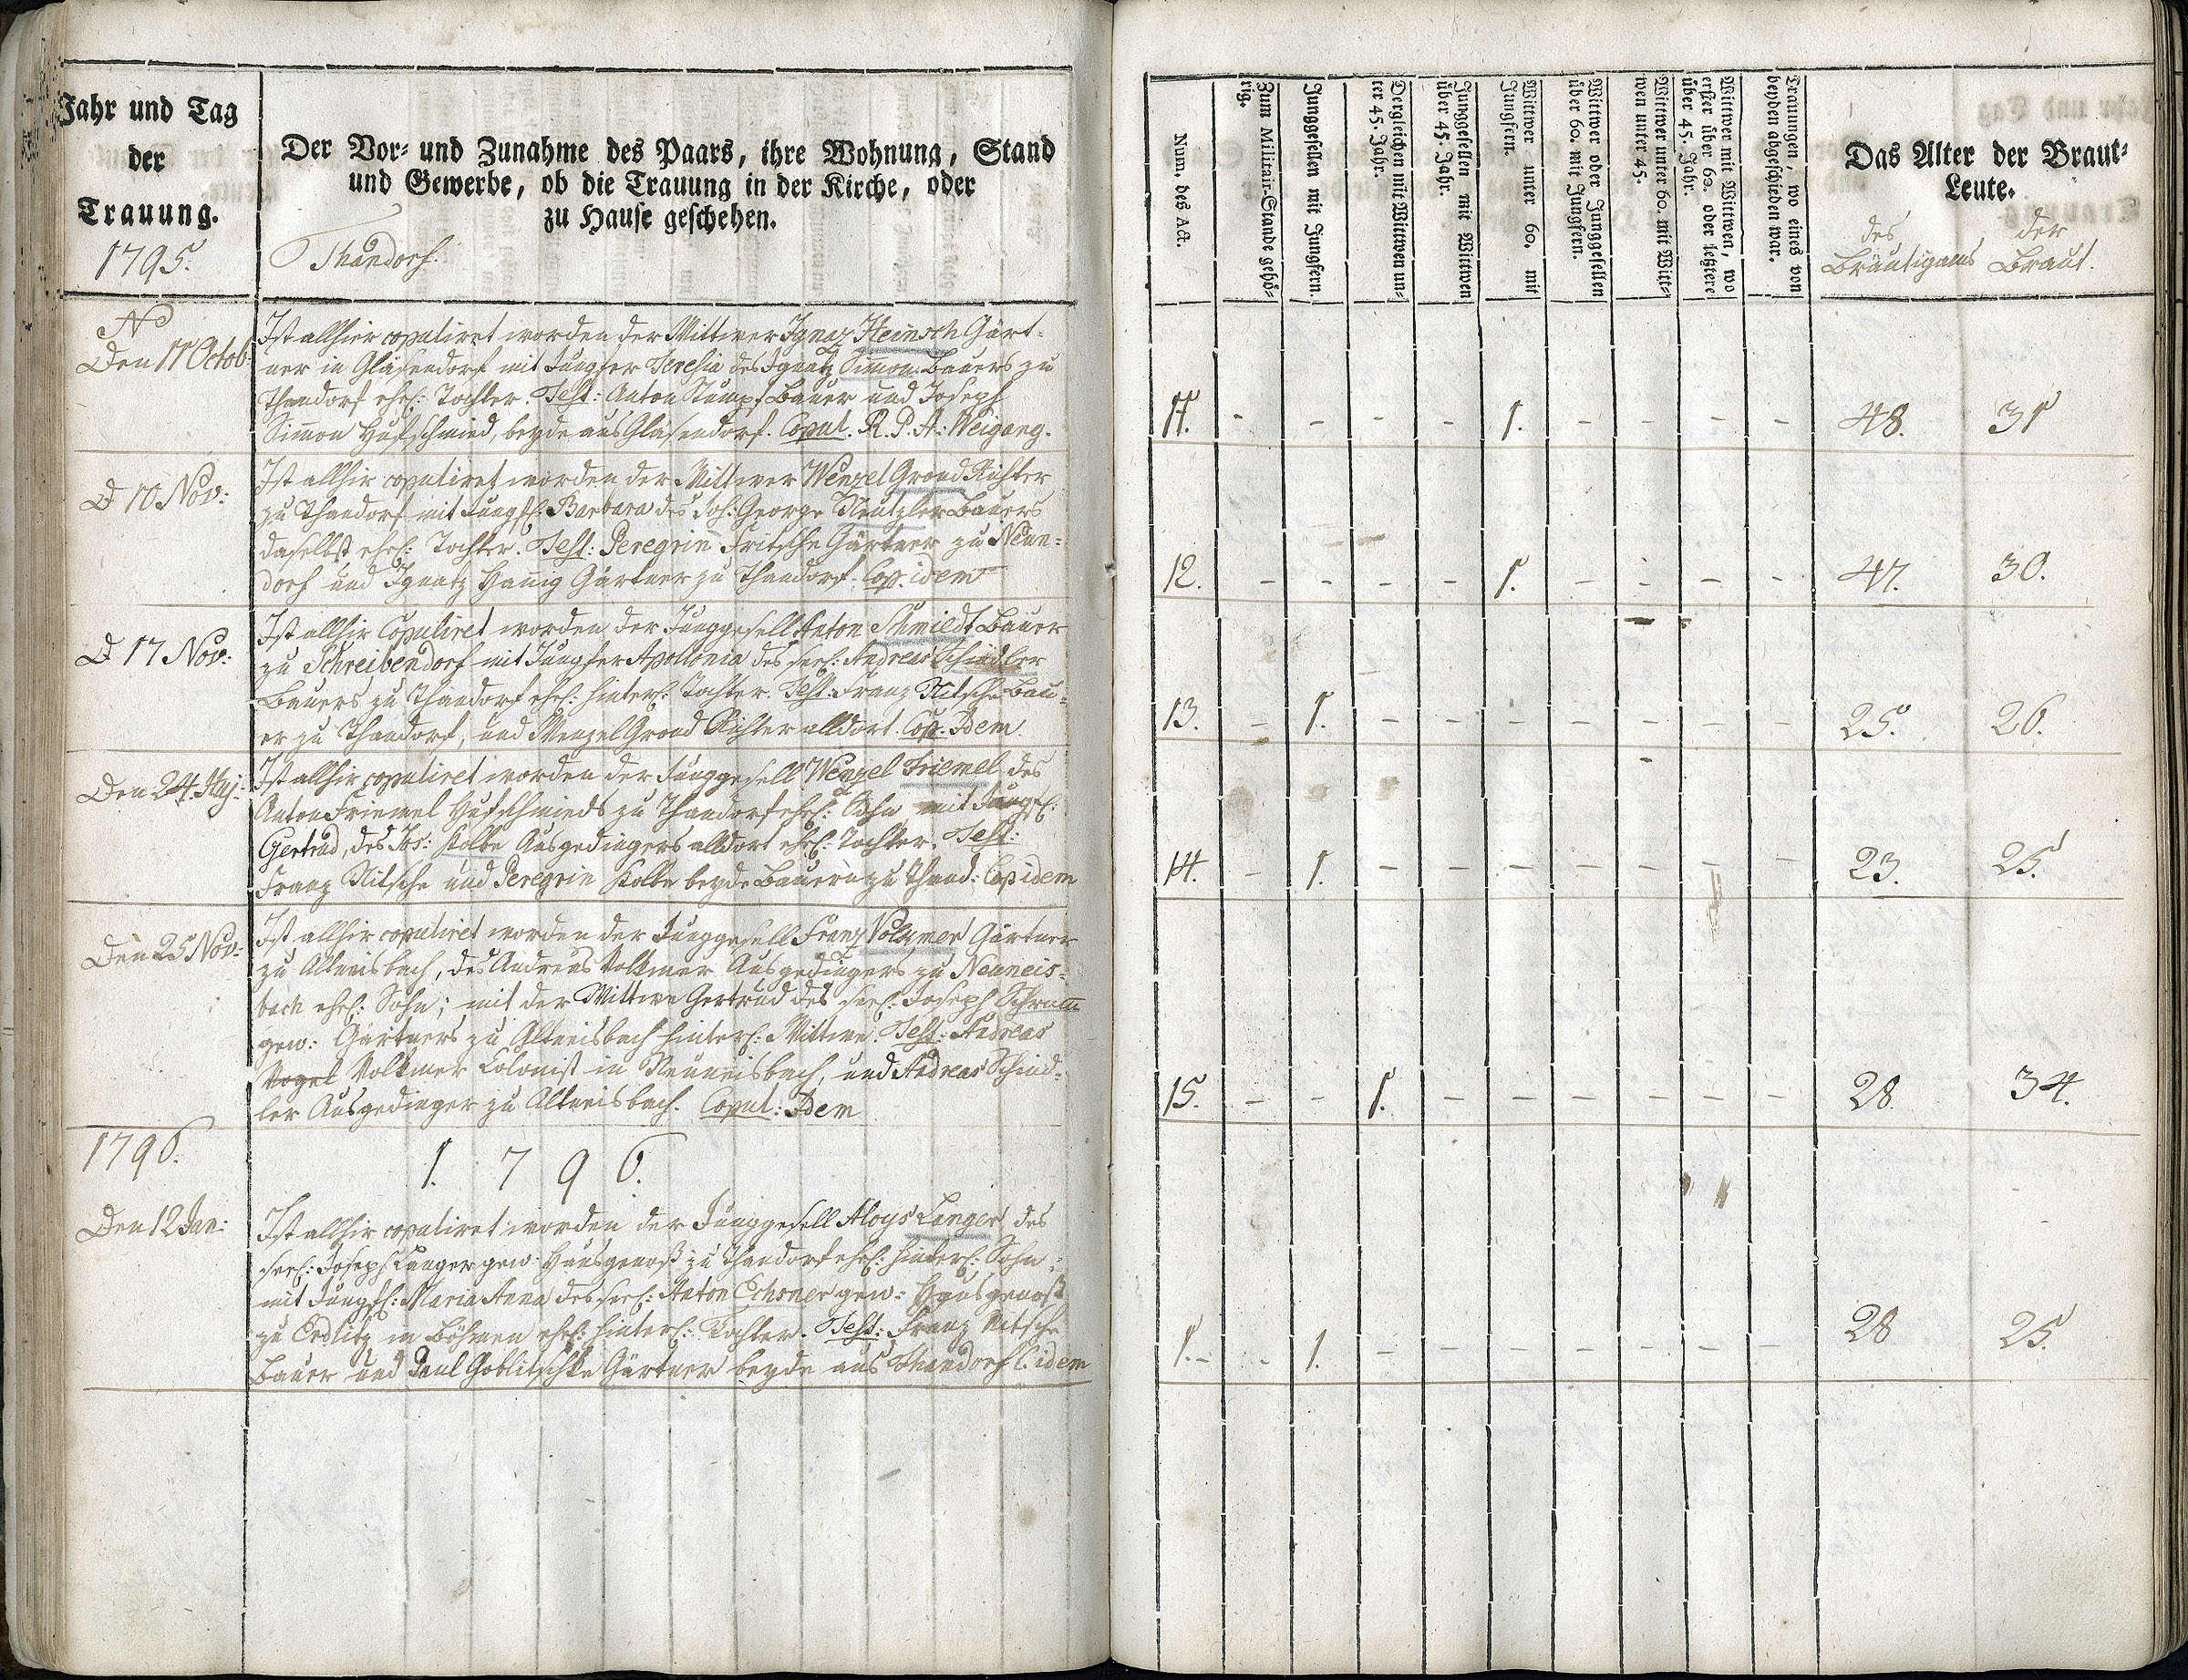 Jahr und Tag
der
Trauung.
1795.
Der Vor- und Zunahme des Paars, ihre Wohnung, Stand
und Gewerbe, ob die Trauung in der Kirche, oder
zu Hause geschehen.
Thandorf.
Den 11 Octob:
Ist allhier copuliret worden der Wittwer Ignaz Heinsch Gärt-
ner in Glasendorf mit Jungfer Teresia des Ignatz Simon Bauers zu
Thandorf ehel: Tochter. Test: Anton Stumpf Bauer und Joseph
Simon Hufschmied, beyde aus Glasendorf. Copul. R. P. A: Weigang.
D 10 Nov:
Ist allhir copuliret worden der Wittwer Wenzel Grond Richter
zu Thandorf mit Jungf: Barbara des Joh: George Neutzler Bauers
daselbst ehel: Tochter. Test: Peregrin Fritsche Gärtner zu Neun-
dorf und Ignatz Hannig Gärtner zu Thandorf. Cop. idem
D 17 Nov:
Ist allhir Copuliret worden der Junggesell Anton Schmiedt Bauer
zu Schreibendorf mit Jungfer Apollonia des seel: Andreas Schindler
Bauers zu Thandorf ehel: hinterl: Tochter. Test: Franz Nitsche Bau-
er zu Thandorf, und Wenzel Grond Richter alldort. Cop. Idem
Den 24. Huj:
Ist allhir copuliret worden der Junggesell Wenzel Friemel des
Anton Friemel Hufschmieds zu Thandorf ehel: Sohn mit Jungf:
Gertrud, des Jos: Kolbe Ausgedingers alldort ehel: Tochter. Test:
Franz Nitsche und Peregrin Kolbe beyde Bauern zu Thand: Cop idem
Den 25 Nov:
Ist allhir copuliret worden der Junggesell Franz Volkmer Gärtner
zu Altneisbach, des Andreas Volkmer Ausgedingers zu Neuneis-
bach ehel: Sohn; mit der Wittwe Gertrud des seel: Joseph Schram
gew: Gärtners zu Altneisbach hinterl: Wittwe. Test: Andreas
Vogel Volkmer Colonist in Neuneisbach, und Andreas Schind-
ler Ausgedinger zu Altneisbach. Copul: Idem
1796.
1. 7 9 6.
Den 12 Jan:
Ist allhir copuliret worden der Junggesell Aloys Langer des
seel: Joseph Langer gew: Hausgenoß zu Thandorf ehel: hinterl: Sohn,
mit Jungf: Maria Anna des seel: Anton Echsner gew: Hausgenoß
zu Erdlitz in Böhmen ehel: hinterl: Tochter. Test: Franz Nitsche
Bauer und Paul Goblitschke Gärtner beyde aus Thandorf C. idem
Num. des Act.
Zum Militair-Stande gehö-
rig.
Junggesellen mit Jungfern.
Dergleichen mit Wittwen un-
ter 45. Jahr.
Junggesellen mit Wittwen
über 45. Jahr.
Wittwer unter 60. mit
Jungfern.
Wittwer oder Junggesellen
über 60. mit Jungfern.
Wittwer unter 60. mit Witt-
wen unter 45.
Wittwer mit Wittwen, wo
erster über 60. oder letztere
über 45. Jahr.
Trauungen, wo eines von
beyden abgeschieden war.
Das Alter der Braut-
Leute.
des
Bräutigams
der
Braut.
11. - - - - 1. - - 48. 31
12. - - - - 1. - - - - 47. 30.
13. - 1. - - - - - - - 25. 26.
14. - 1. - - - - - - - 23. 25.
15. - - 1. - - - - - - 28. 34.
1. - - 1. - - - - - - - 28 25.